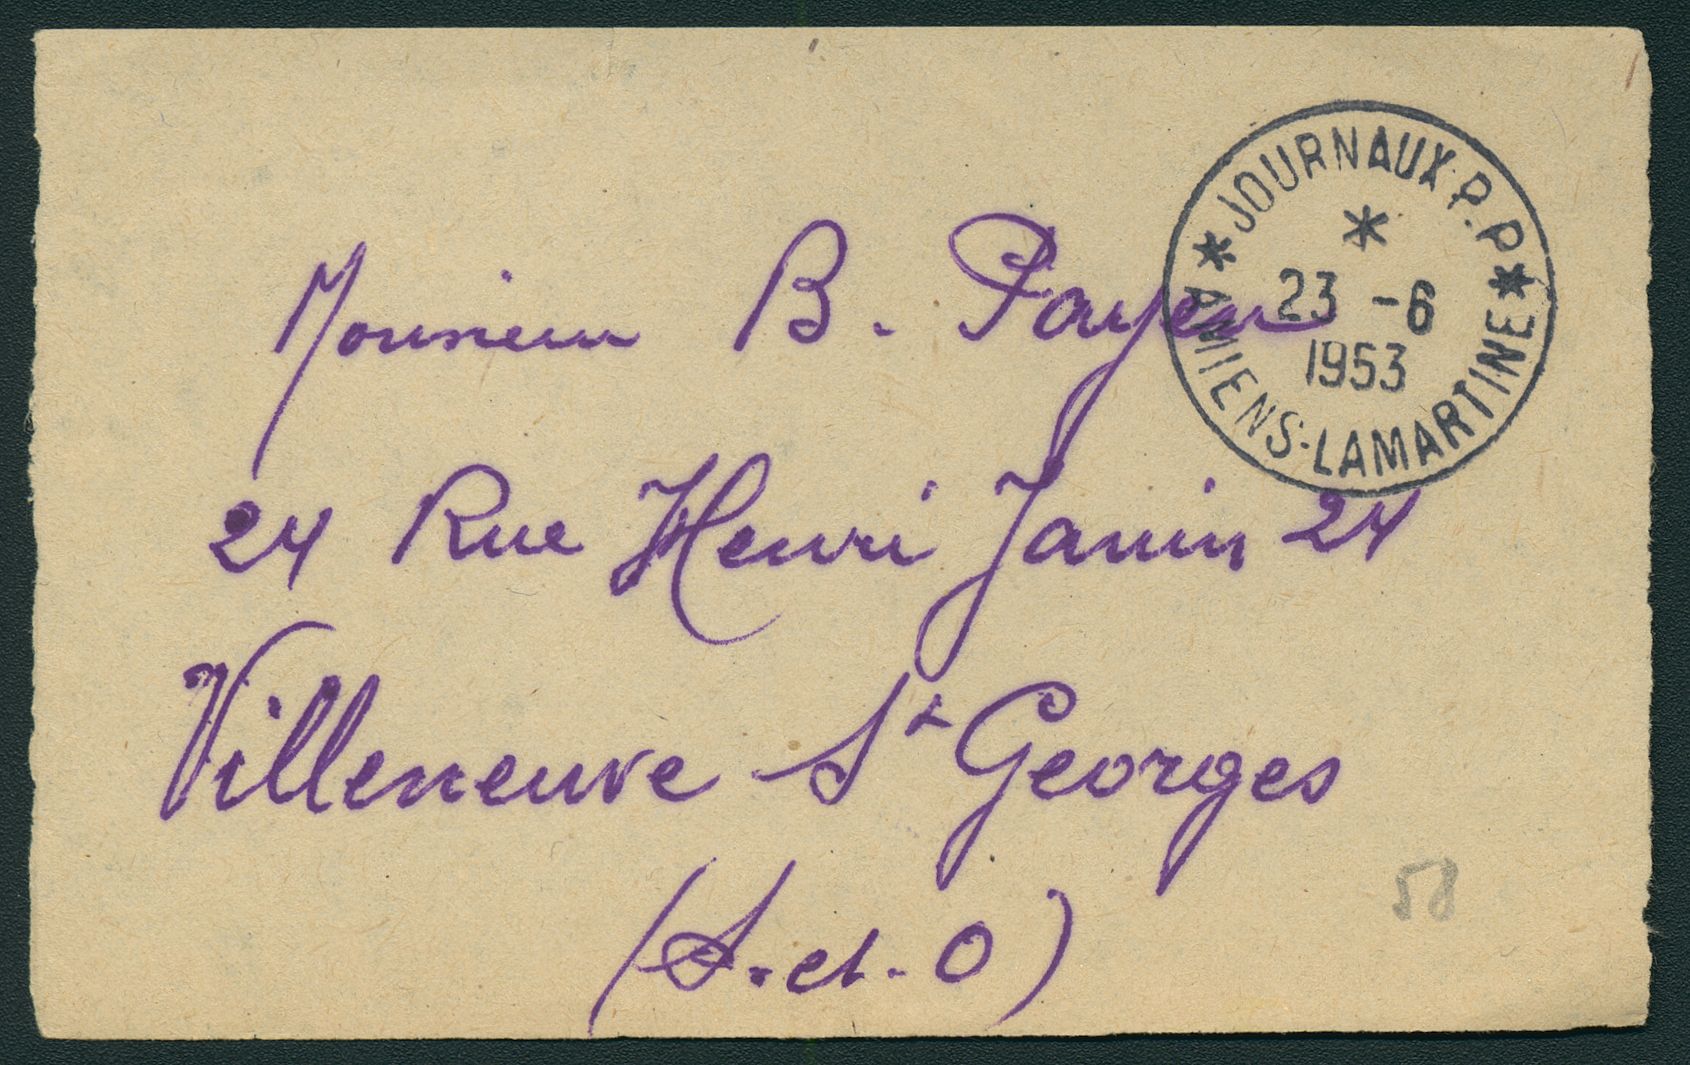 * JOURNAUX P.P. *
*
23 -6
1953
AMIENS-LAMARTINE
Monsieur B. Payen
24 Rue Henri Janin 24
Villeneuve St Georges
(S.-et.-O)
58